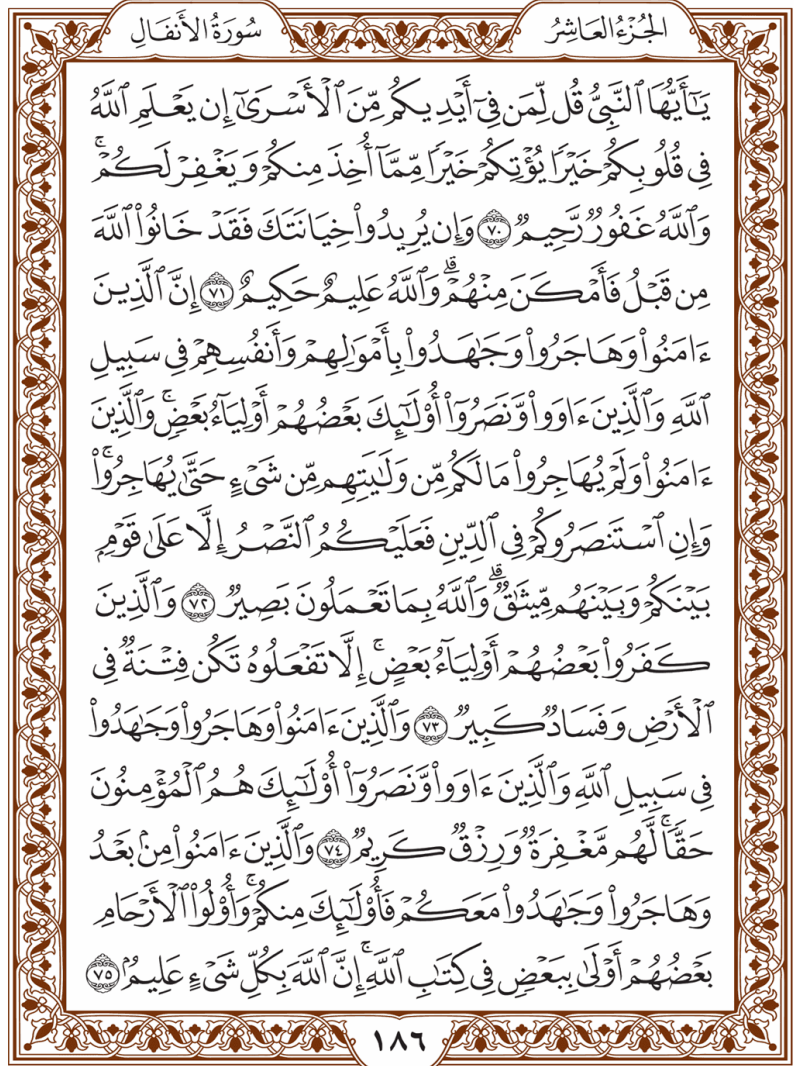 الجُزْءُ العَاشِرُ
سُورَةُ الأَنفَالِ
يَٰٓأَيُّهَا ٱلنَّبِيُّ قُل لِّمَن فِيٓ أَيْدِيكُم مِّنَ ٱلْأَسْرَىٰٓ إِن يَعْلَمِ ٱللَّهُ
فِي قُلُوبِكُمْ خَيْرًا يُؤْتِكُمْ خَيْرًا مِّمَّآ أُخِذَ مِنكُمْ وَيَغْفِرْ لَكُمْۚ
وَٱللَّهُ غَفُورٌ رَّحِيمٌ ٧٠ وَإِن يُرِيدُوا۟ خِيَانَتَكَ فَقَدْ خَانُوا۟ ٱللَّهَ
مِن قَبْلُ فَأَمْكَنَ مِنْهُمْۗ وَٱللَّهُ عَلِيمٌ حَكِيمٌ ٧١ إِنَّ ٱلَّذِينَ
ءَامَنُوا۟ وَهَاجَرُوا۟ وَجَٰهَدُوا۟ بِأَمْوَٰلِهِمْ وَأَنفُسِهِمْ فِي سَبِيلِ
ٱللَّهِ وَٱلَّذِينَ ءَاوَوا۟ وَّنَصَرُوٓا۟ أُو۟لَٰٓئِكَ بَعْضُهُمْ أَوْلِيَآءُ بَعْضٍۚ وَٱلَّذِينَ
ءَامَنُوا۟ وَلَمْ يُهَاجِرُوا۟ مَا لَكُم مِّن وَلَٰيَتِهِم مِّن شَيْءٍ حَتَّىٰ يُهَاجِرُوا۟ۚ
وَإِنِ ٱسْتَنصَرُوكُمْ فِي ٱلدِّينِ فَعَلَيْكُمُ ٱلنَّصْرُ إِلَّا عَلَىٰ قَوْمٍۭ
بَيْنَكُمْ وَبَيْنَهُم مِّيثَٰقٌۗ وَٱللَّهُ بِمَا تَعْمَلُونَ بَصِيرٌ ٧٢ وَٱلَّذِينَ
كَفَرُوا۟ بَعْضُهُمْ أَوْلِيَآءُ بَعْضٍۚ إِلَّا تَفْعَلُوهُ تَكُن فِتْنَةٌ فِي
ٱلْأَرْضِ وَفَسَادٌ كَبِيرٌ ٧٣ وَٱلَّذِينَ ءَامَنُوا۟ وَهَاجَرُوا۟ وَجَٰهَدُوا۟
فِي سَبِيلِ ٱللَّهِ وَٱلَّذِينَ ءَاوَوا۟ وَّنَصَرُوٓا۟ أُو۟لَٰٓئِكَ هُمُ ٱلْمُؤْمِنُونَ
حَقًّاۚ لَّهُم مَّغْفِرَةٌ وَرِزْقٌ كَرِيمٌ ٧٤ وَٱلَّذِينَ ءَامَنُوا۟ مِنۢ بَعْدُ
وَهَاجَرُوا۟ وَجَٰهَدُوا۟ مَعَكُمْ فَأُو۟لَٰٓئِكَ مِنكُمْۚ وَأُو۟لُوا۟ ٱلْأَرْحَامِ
بَعْضُهُمْ أَوْلَىٰ بِبَعْضٍ فِي كِتَٰبِ ٱللَّهِۚ إِنَّ ٱللَّهَ بِكُلِّ شَيْءٍ عَلِيمٌۢ ٧٥
١٨٦